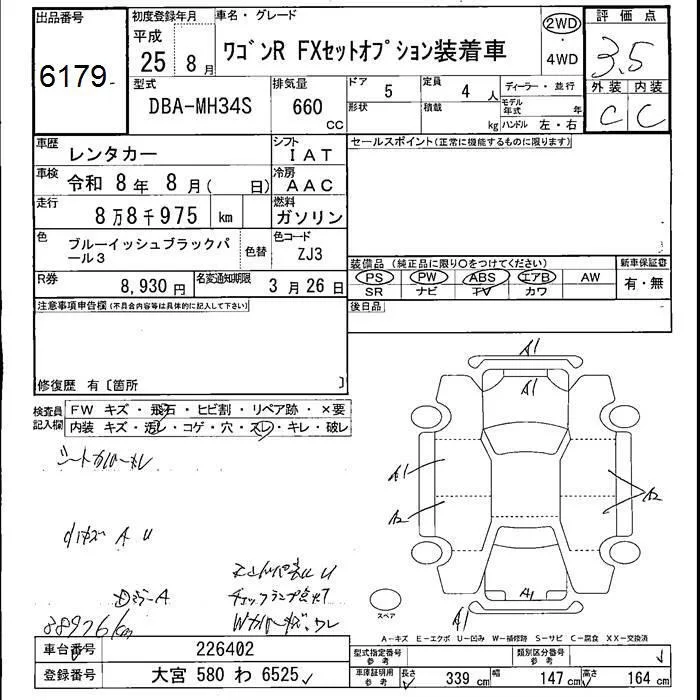 出品番号 初度登録年月 車名・グレード 2WD 評価点
6179 平成 25 8月 ワゴンR FXセットオプション装着車 4WD 3.5
型式 排気量 ドア 5 定員 4人 ディーラー・並行 外装 内装
DBA-MH34S 660 CC 形状 積載 kg モデル年式 年 ハンドル 左・右 C C
車歴 レンタカー シフト IAT セールスポイント(正常に機能するものに限ります)
車検 令和 8年 8月( 日) 冷房 AAC
走行 8万8千975 km 燃料 ガソリン
色 ブルーイッシュブラックパール3 色替 色コード ZJ3
装備品 (純正品に限り○をつけてください) 新車保証書
R券 8,930円 名変通知期限 3月26日 PS PW ABS エアB AW 有・無
SR ナビ TV カワ
注意事項申告欄(不具合内容等は具体的に記入して下さい) 後日品
修復歴 有〔箇所 〕
検査員記入欄 FW キズ・飛石・ヒビ割・リペア跡・×要
内装 キズ・汚レ・コゲ・穴・スレ・キレ・破レ
A1
A1
A1
A2
A2
A1
A1
スペア
88976km
A-キズ E-エクボ U-凹み W-補修跡 S-サビ C-腐食 XX-交換済
車台番号 226402 型式指定番号 参考 類別区分番号 参考
登録番号 大宮 580 わ 6525 車庫証明用 参考 長さ 339 cm 幅 147 cm 高さ 164 cm